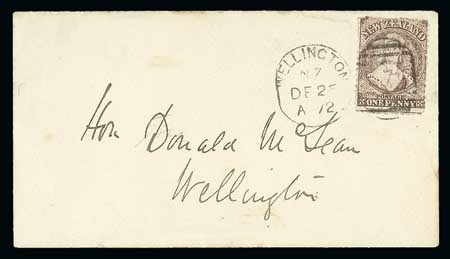 WELLINGTON
NZ
DE 2
A 72
NEW ZEALAND
POSTAGE
ONE PENNY
Hon Donald McLean
Wellington